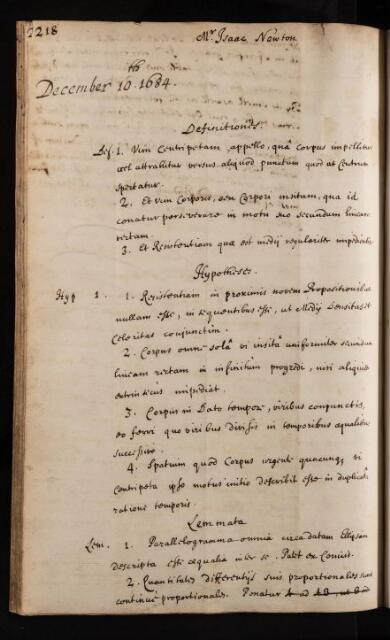 2218
Mr. Isaac Newton
December 10th. 1684.
Definitiones.
Def. 1. Vim Centripetam appello, quâ Corpus impellitur
vel attrahitur versus aliquod punctum quod ut Centrum
spectatur.
2. Et vim Corporis, seu Corpori insitam, qua id
conatur perseverare in motu suo secundum lineam
rectam.
3. Et Resistentiam quæ est medij regulariter impedientis
Hypotheses.
Hyp 1. 1. Resistentiam in proximis novem Propositionibus
nullam esse, in sequentibus esse, ut Medij Densitas et
Celeritas conjunctim.
2. Corpus omne solâ vi insitâ uniformiter secundum
lineam rectam in infinitum progredi, nisi aliquid
extrinsecus impediat.
3. Corpus in Dato tempore, viribus conjunctis,
eo ferri quo viribus divisis in temporibus æqualibus
successive.
4. Spatium quod Corpus urgente quacunq; vi
Centripeta ipso motus initio describit esse in duplicatâ
ratione temporis.
Lemmata
Lem. 1. Parallelogramma omnia circa datam Ellipsin
descripta esse æqualia inter se. Patet ex Conicis.
2. Quantitates Differentijs suis proportionales sunt
continuè proportionales. Ponatur